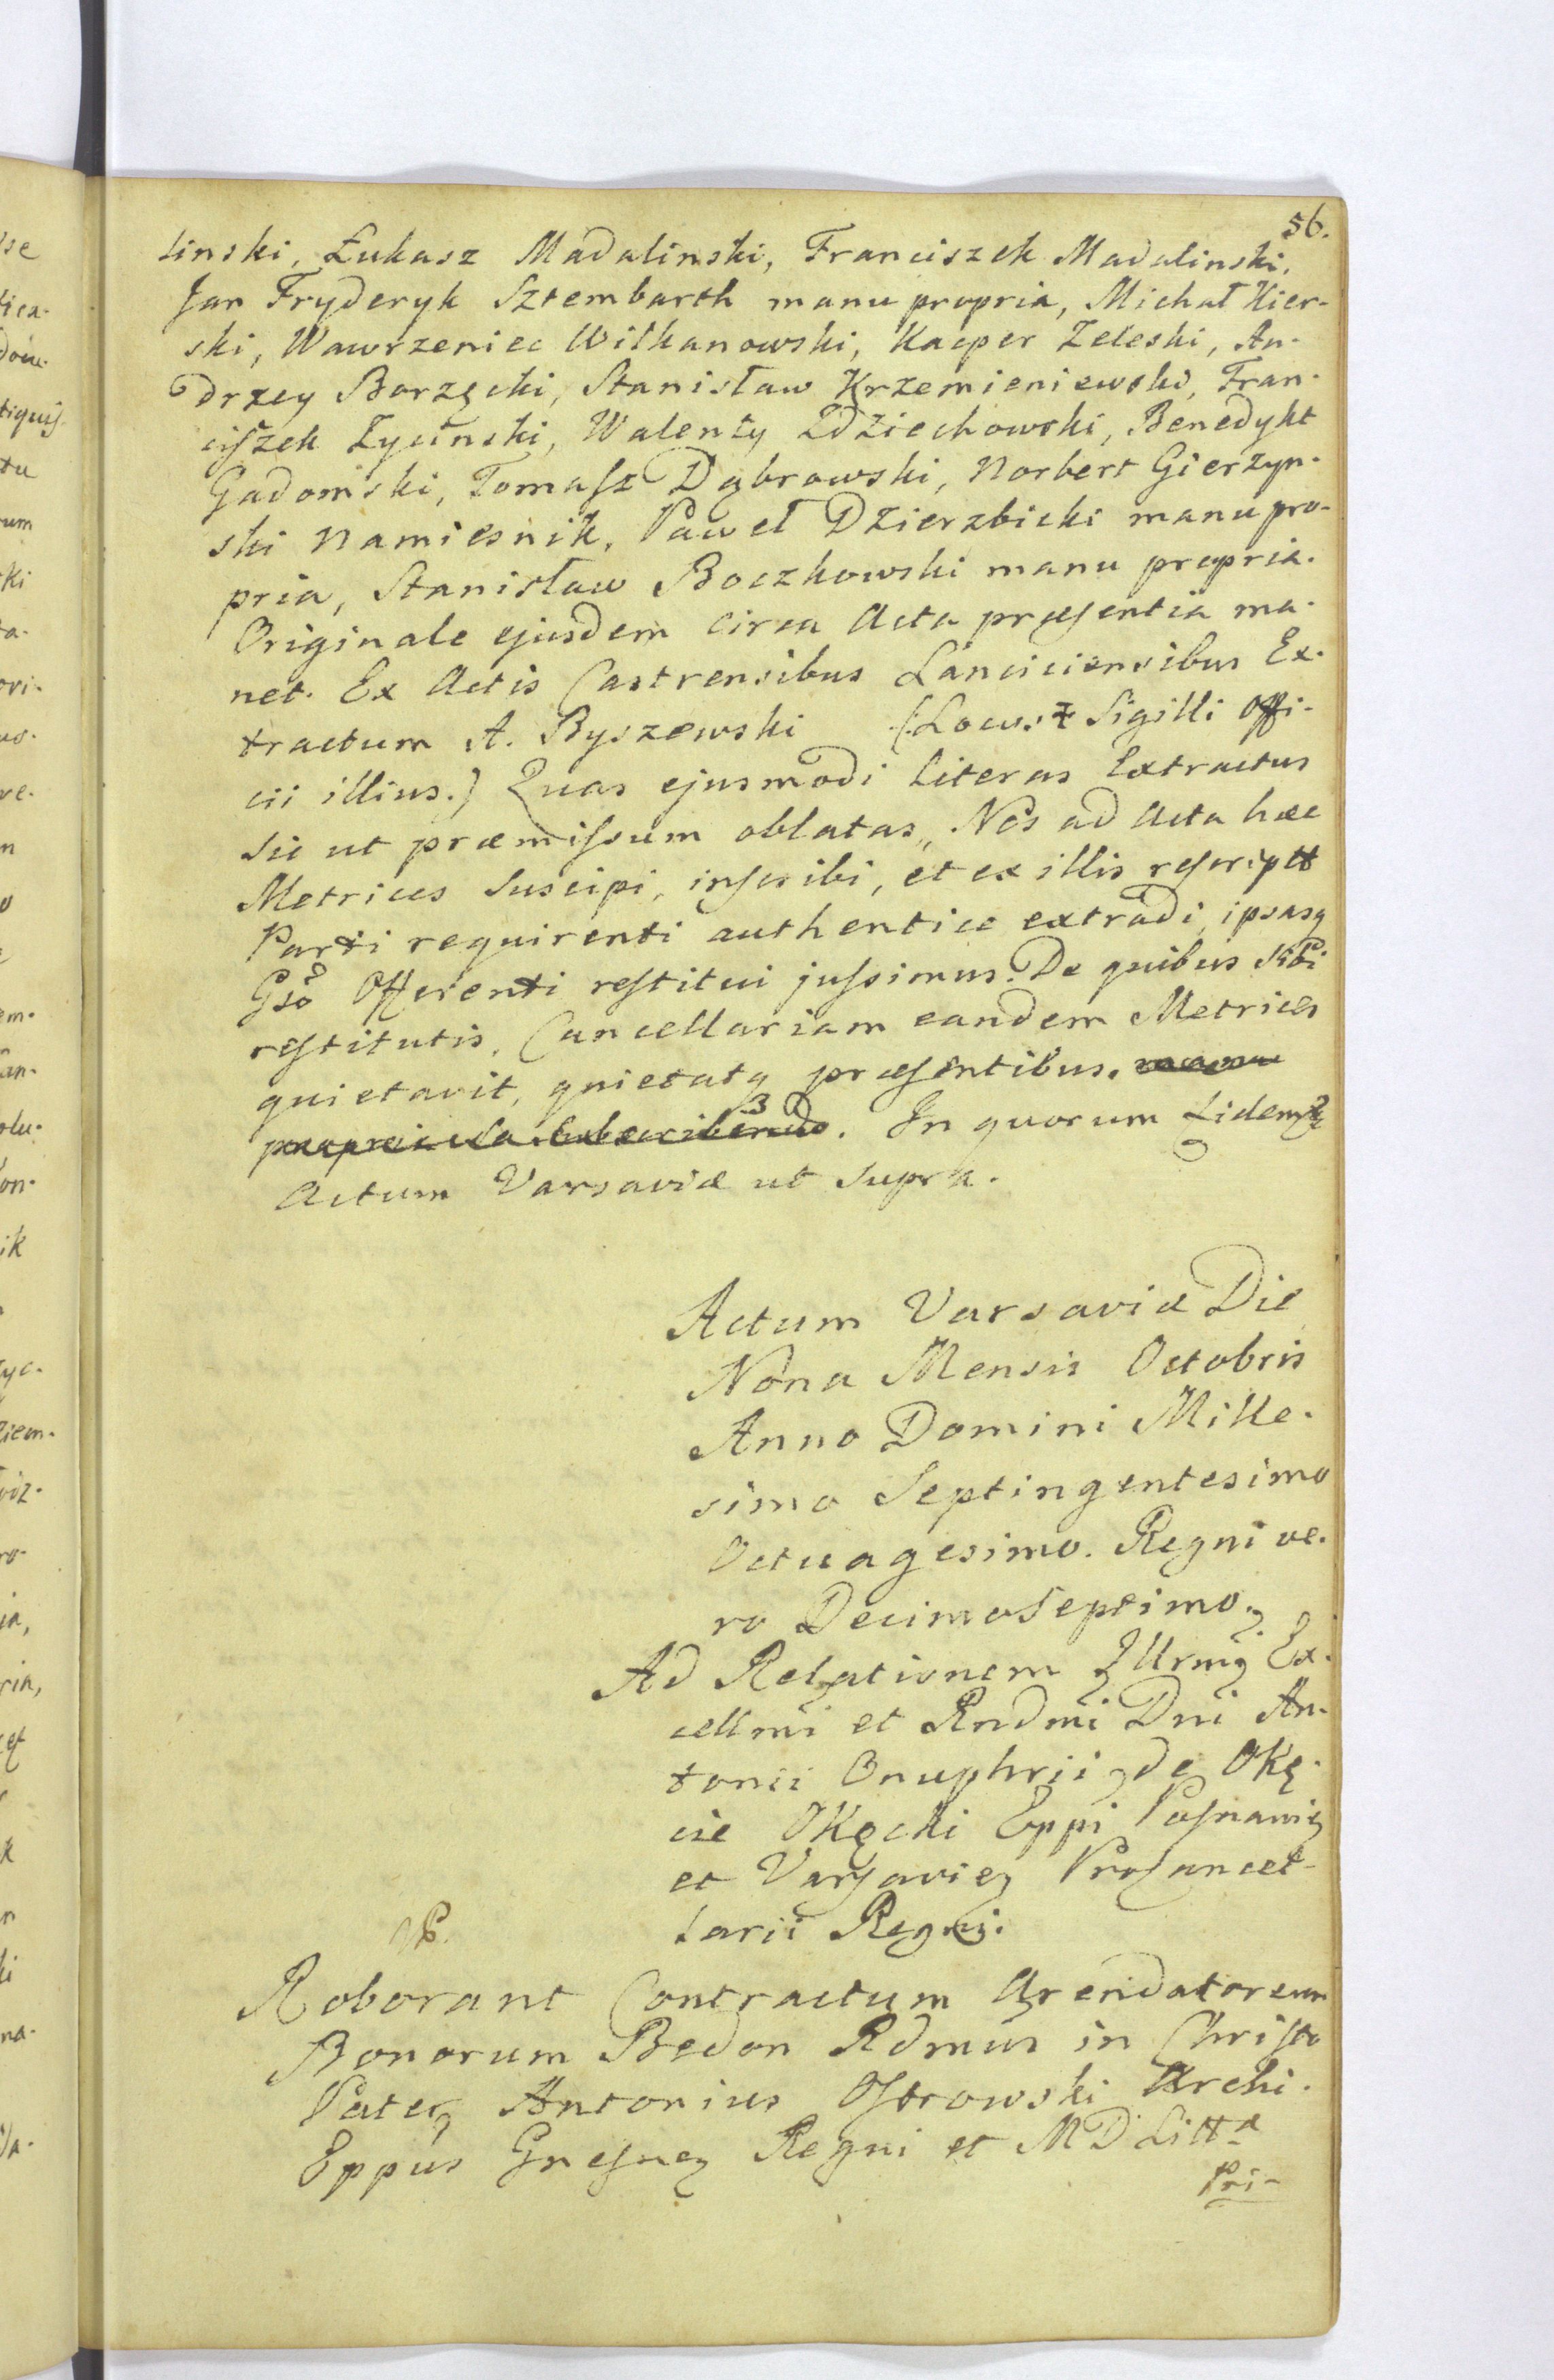 56.
linski, Łukasz Madalinski, Franciszek Madalinski,
Jan Fryderyk Sztembarth manu propria, Michał Kier-
ski, Wawrzeniec Witkanowski, Kacper Zeleski, An-
drzey Borzęcki, Stanisław Krzemieniewski, Fran-
ciszek Zycinski, Walenty Zdziechowski, Benedykt
Gadomski, Tomasz Dąbrowski, Norbert Gierzyn-
ski Namiesnik, Paweł Dzierzbicki manu pro-
pria, Stanisław Boczkowski manu propria.
Originale ejusdem circa Acta præsentia ma-
net. Ex Actis Castrensibus Lanciciensibus Ex-
tractum A. Byszewski (Locus Sigilli Offi-
cii illius.) Quas ejusmodi Literas Extractus
sic ut præmissum oblatas, Nos ad Acta hæc
Metrices suscipi, inscribi, et ex illis rescriptt
Parti requirenti authentice extradi, ipsasq
Gso Offerenti restitui jussimus. De quibus sibi
restitutis, Cancellariam eandem Metrices
quietavit, quietatq præsentibus. manu
propria sua subscribendo. In quorum fidem
Actum Varsaviæ ut supra.
Actum Varsaviæ Die
Nona Mensis Octobris
Anno Domini Mille-
simo Septingentesimo
Octuagesimo. Regni ve-
ro Decimo Septimo.
Ad Relationem Illrmi Ex-
cellmi et Rndmi Dni An-
tonii Onuphrii de Okę-
cie Okęcki Eppi Posnanien
et Varsavien Procancel-
larii Regni.
Roborant Contractum Arendatoreum
Bonorum Bedon Rdmus in Christo
Pater Antonius Ostrowski Archi-
Eppus Gnesnen Regni et M D Litt
Pri-